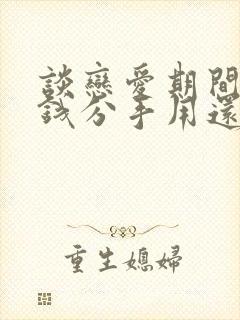 談戀愛期間
錢分手用還
重生媳婦